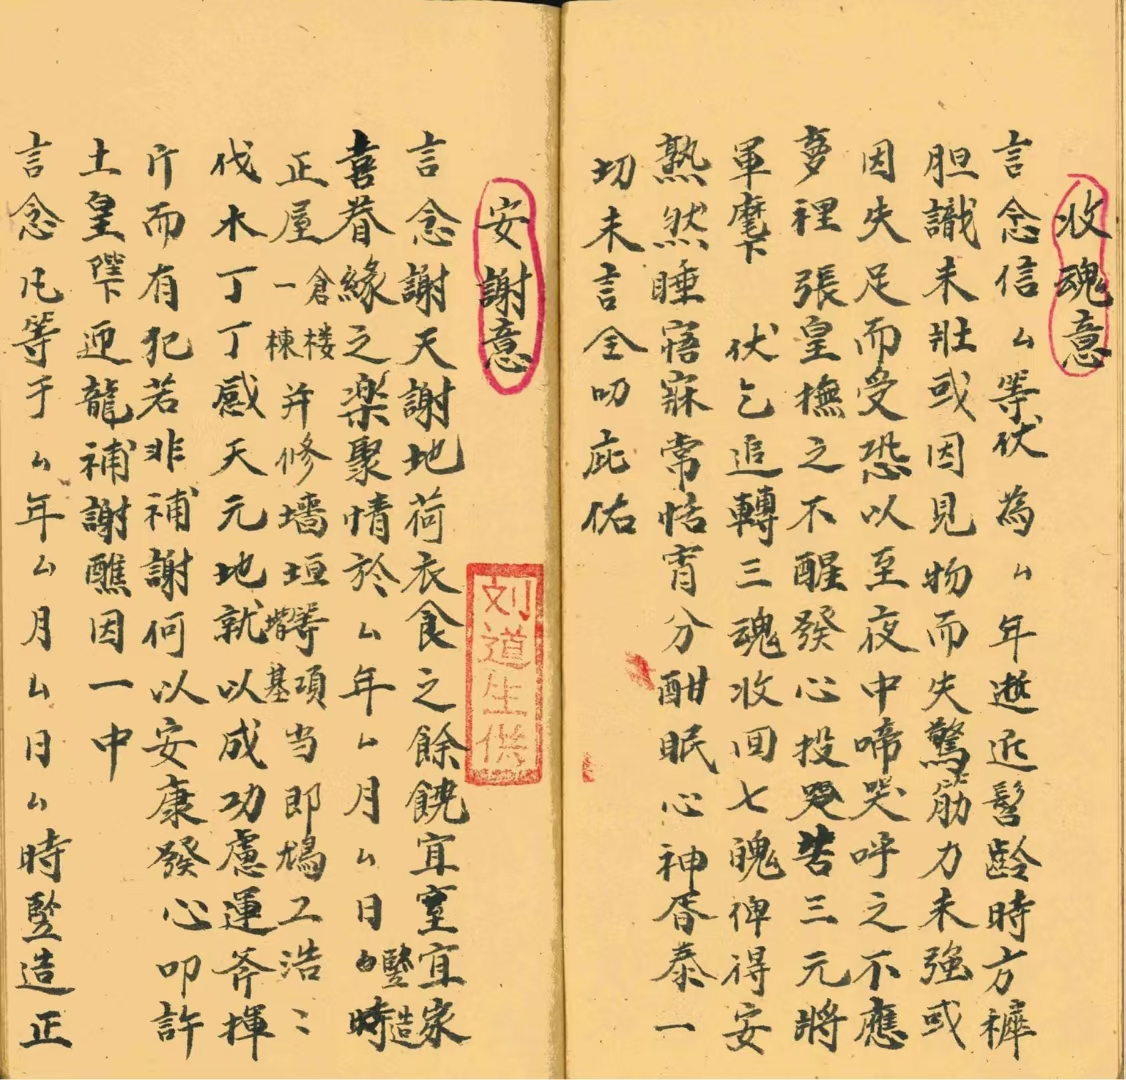 收魂意
言念信ム等伏為ム年逝近髫齡時方褲
胆識未壯或因見物而失驚筋力未強或
因失足而受恐以至夜中啼哭呼之不應
夢裡張皇撫之不醒發心投哭告三元將
軍麾下伏乞追轉三魂收回七魄俾得安
熟然睡寤寐常恬宵分酣眠心神脊泰一
切未言全叨庇佑
安謝意
言念謝天謝地荷衣食之餘饒宜室宜家
喜眷緣之楽聚情於ム年ム月ム日由時豎造
正屋一棟倉楼并修墻垣堦基等項当即鳩工浩〻
伐木丁丁感天元地就以成功慮運斧揮
斤而有犯若非補謝何以安康發心叩許
土皇陛下迎龍補謝醮因一中
言念凡等于ム年ム月ム日ム時豎造正
刘道生供